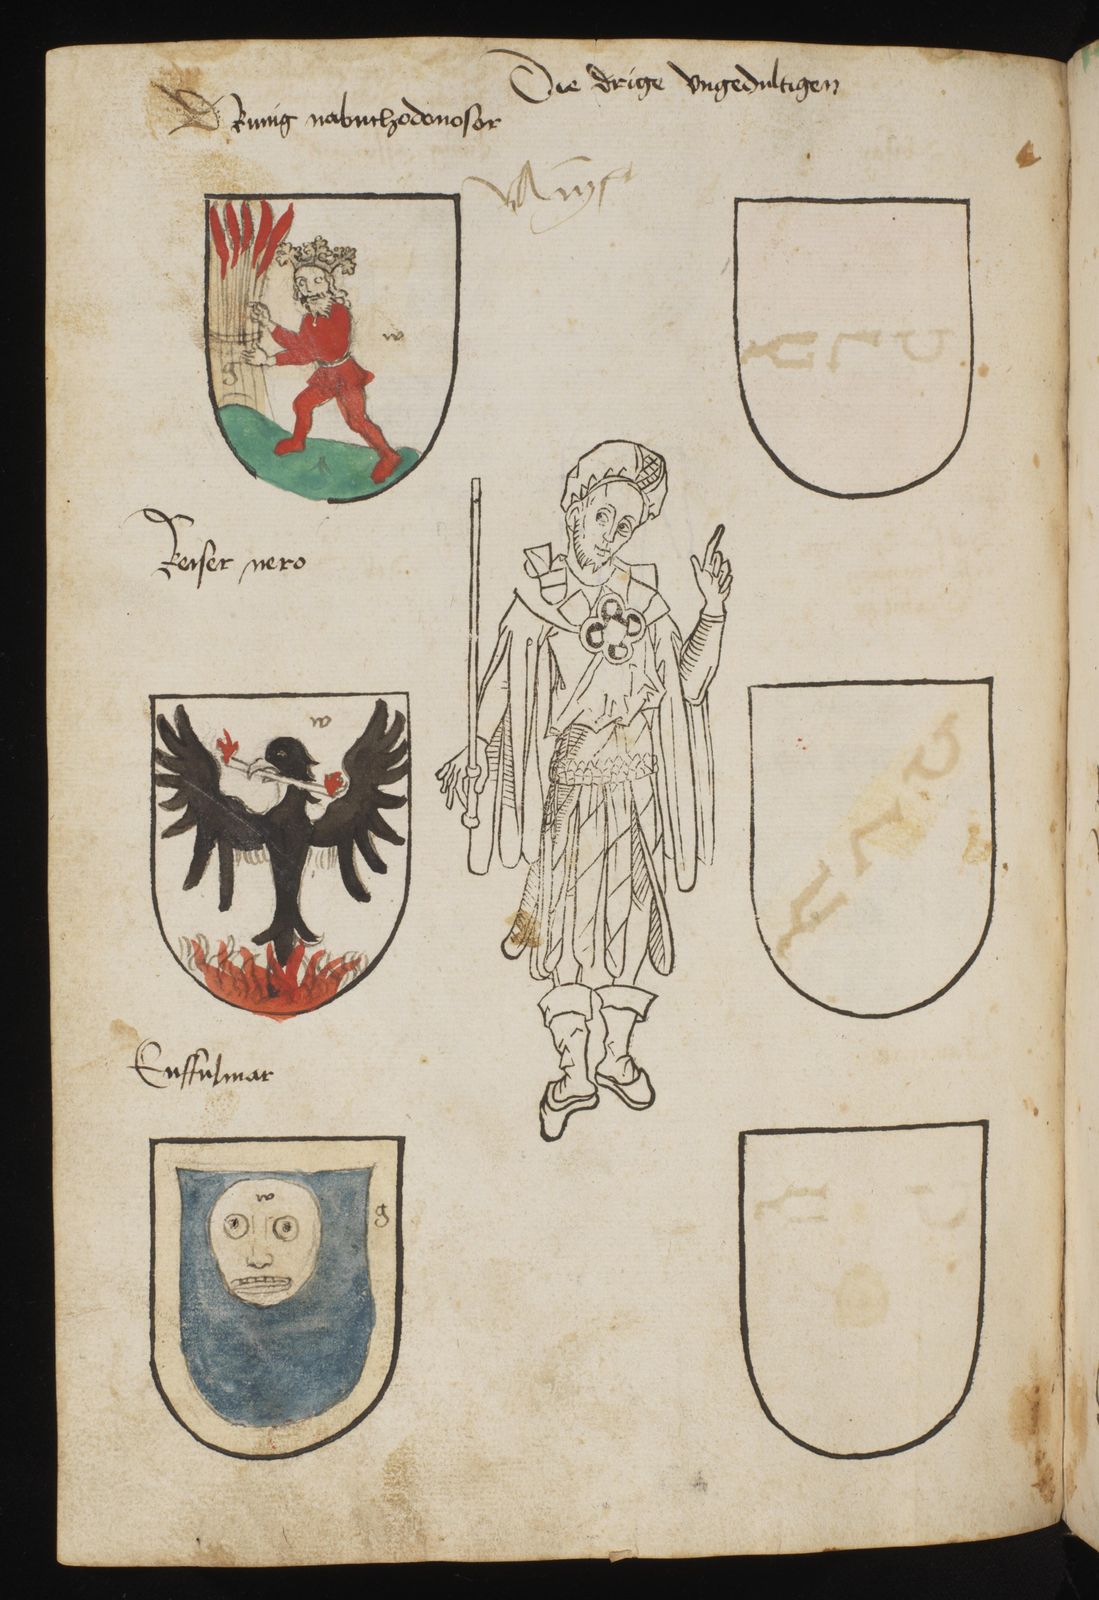 Die drige vngedultigen
Kunig nabuchodonosor
w
g
Keiser nero
w
Enffulmar
w
g